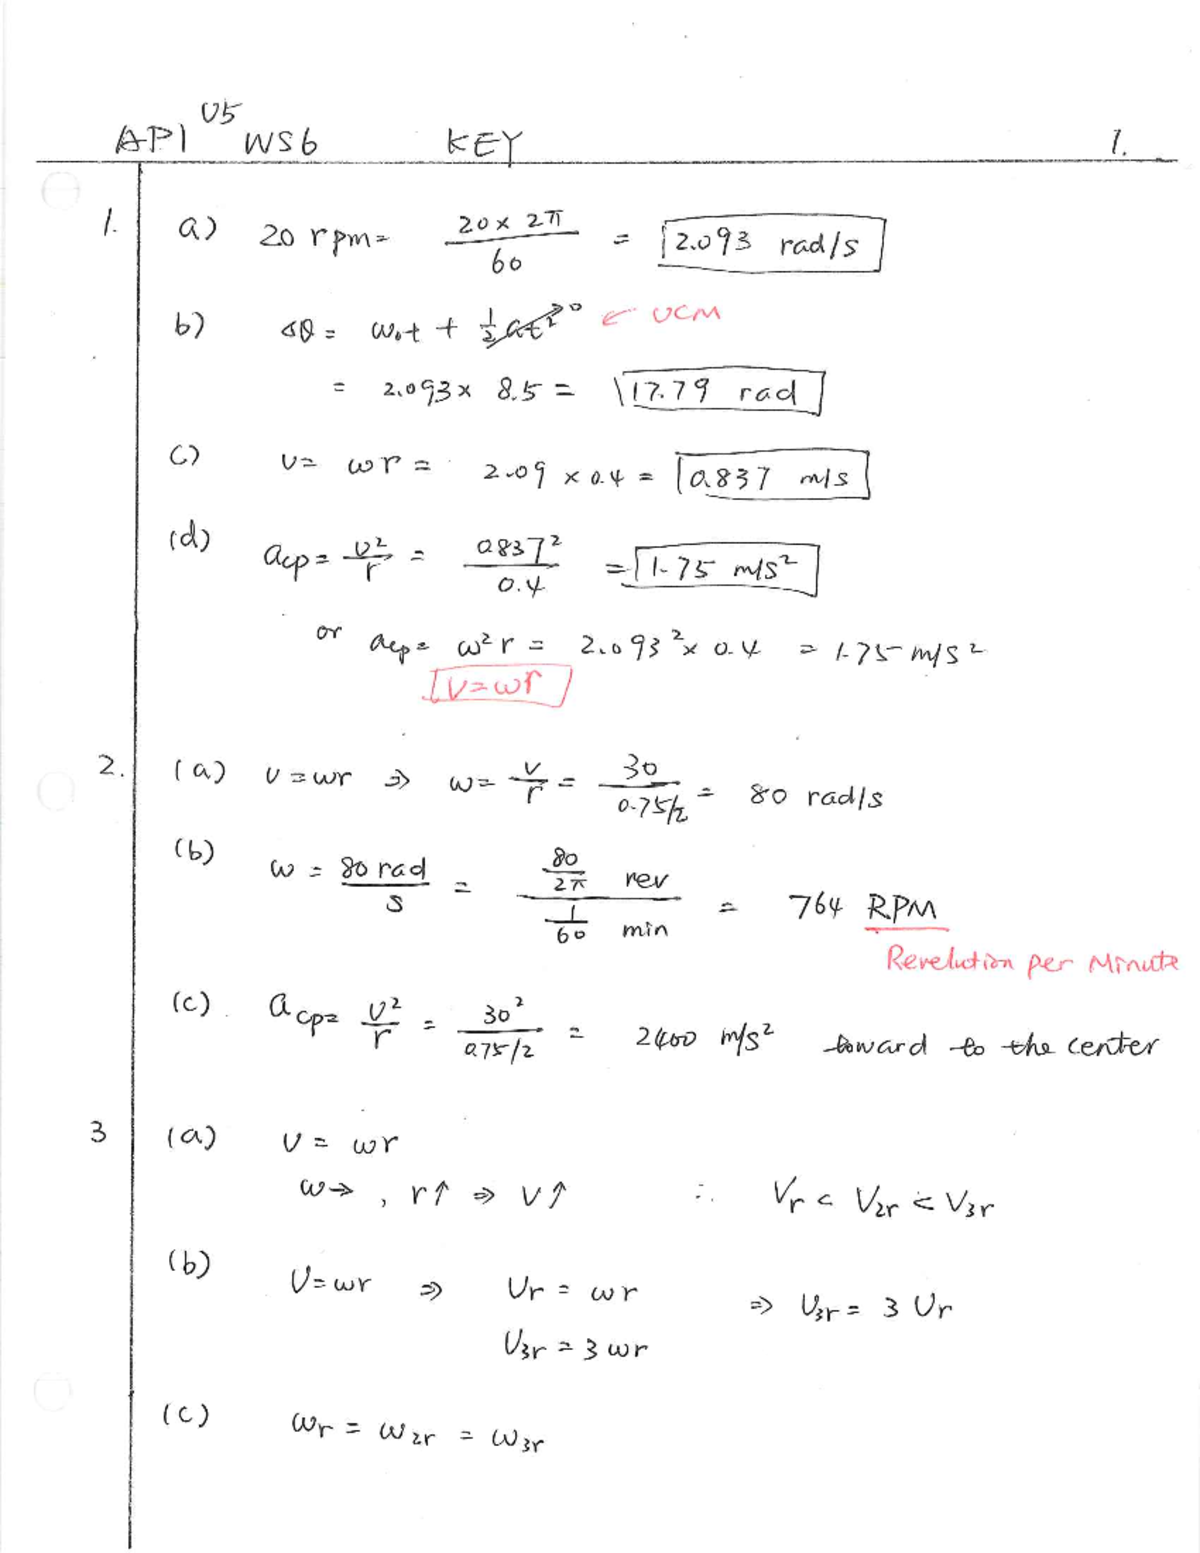 U5
AP1 WS6 KEY 1.
1. a) 20 rpm = \frac{20 × 2π}{60} = 2.093 rad/s
b) Δθ = ω₀t + \frac{1}{2}αt² 0 ← UCM
= 2.093 × 8.5 = 17.79 rad
c) v = ωr = 2.09 × 0.4 = 0.837 m/s
(d) acp = \frac{v²}{r} = \frac{0.837²}{0.4} = 1.75 m/s²
or acp = ω²r = 2.093² × 0.4 = 1.75 m/s²
v = ωr
2. (a) v = ωr ⇒ ω = \frac{v}{r} = \frac{30}{0.75/2} = 80 rad/s
(b) ω = \frac{80 rad}{s} = \frac{\frac{80}{2π} rev}{\frac{1}{60} min} = 764 RPM
Revelution per Minute
(c). acp = \frac{v²}{r} = \frac{30²}{0.75/2} = 2400 m/s² toward to the center
3 (a) v = ωr
ω→, r↑ ⇒ v↑ ∴ Vr < V2r < V3r
(b) v = ωr ⇒ Vr = ωr ⇒ V3r = 3 Vr
V3r = 3 ωr
(c) ωr = ω2r = ω3r